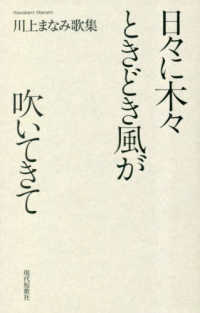 Kawakami Manami
川上まなみ歌集
日々に木々
ときどき風が
吹いてきて
現代短歌社